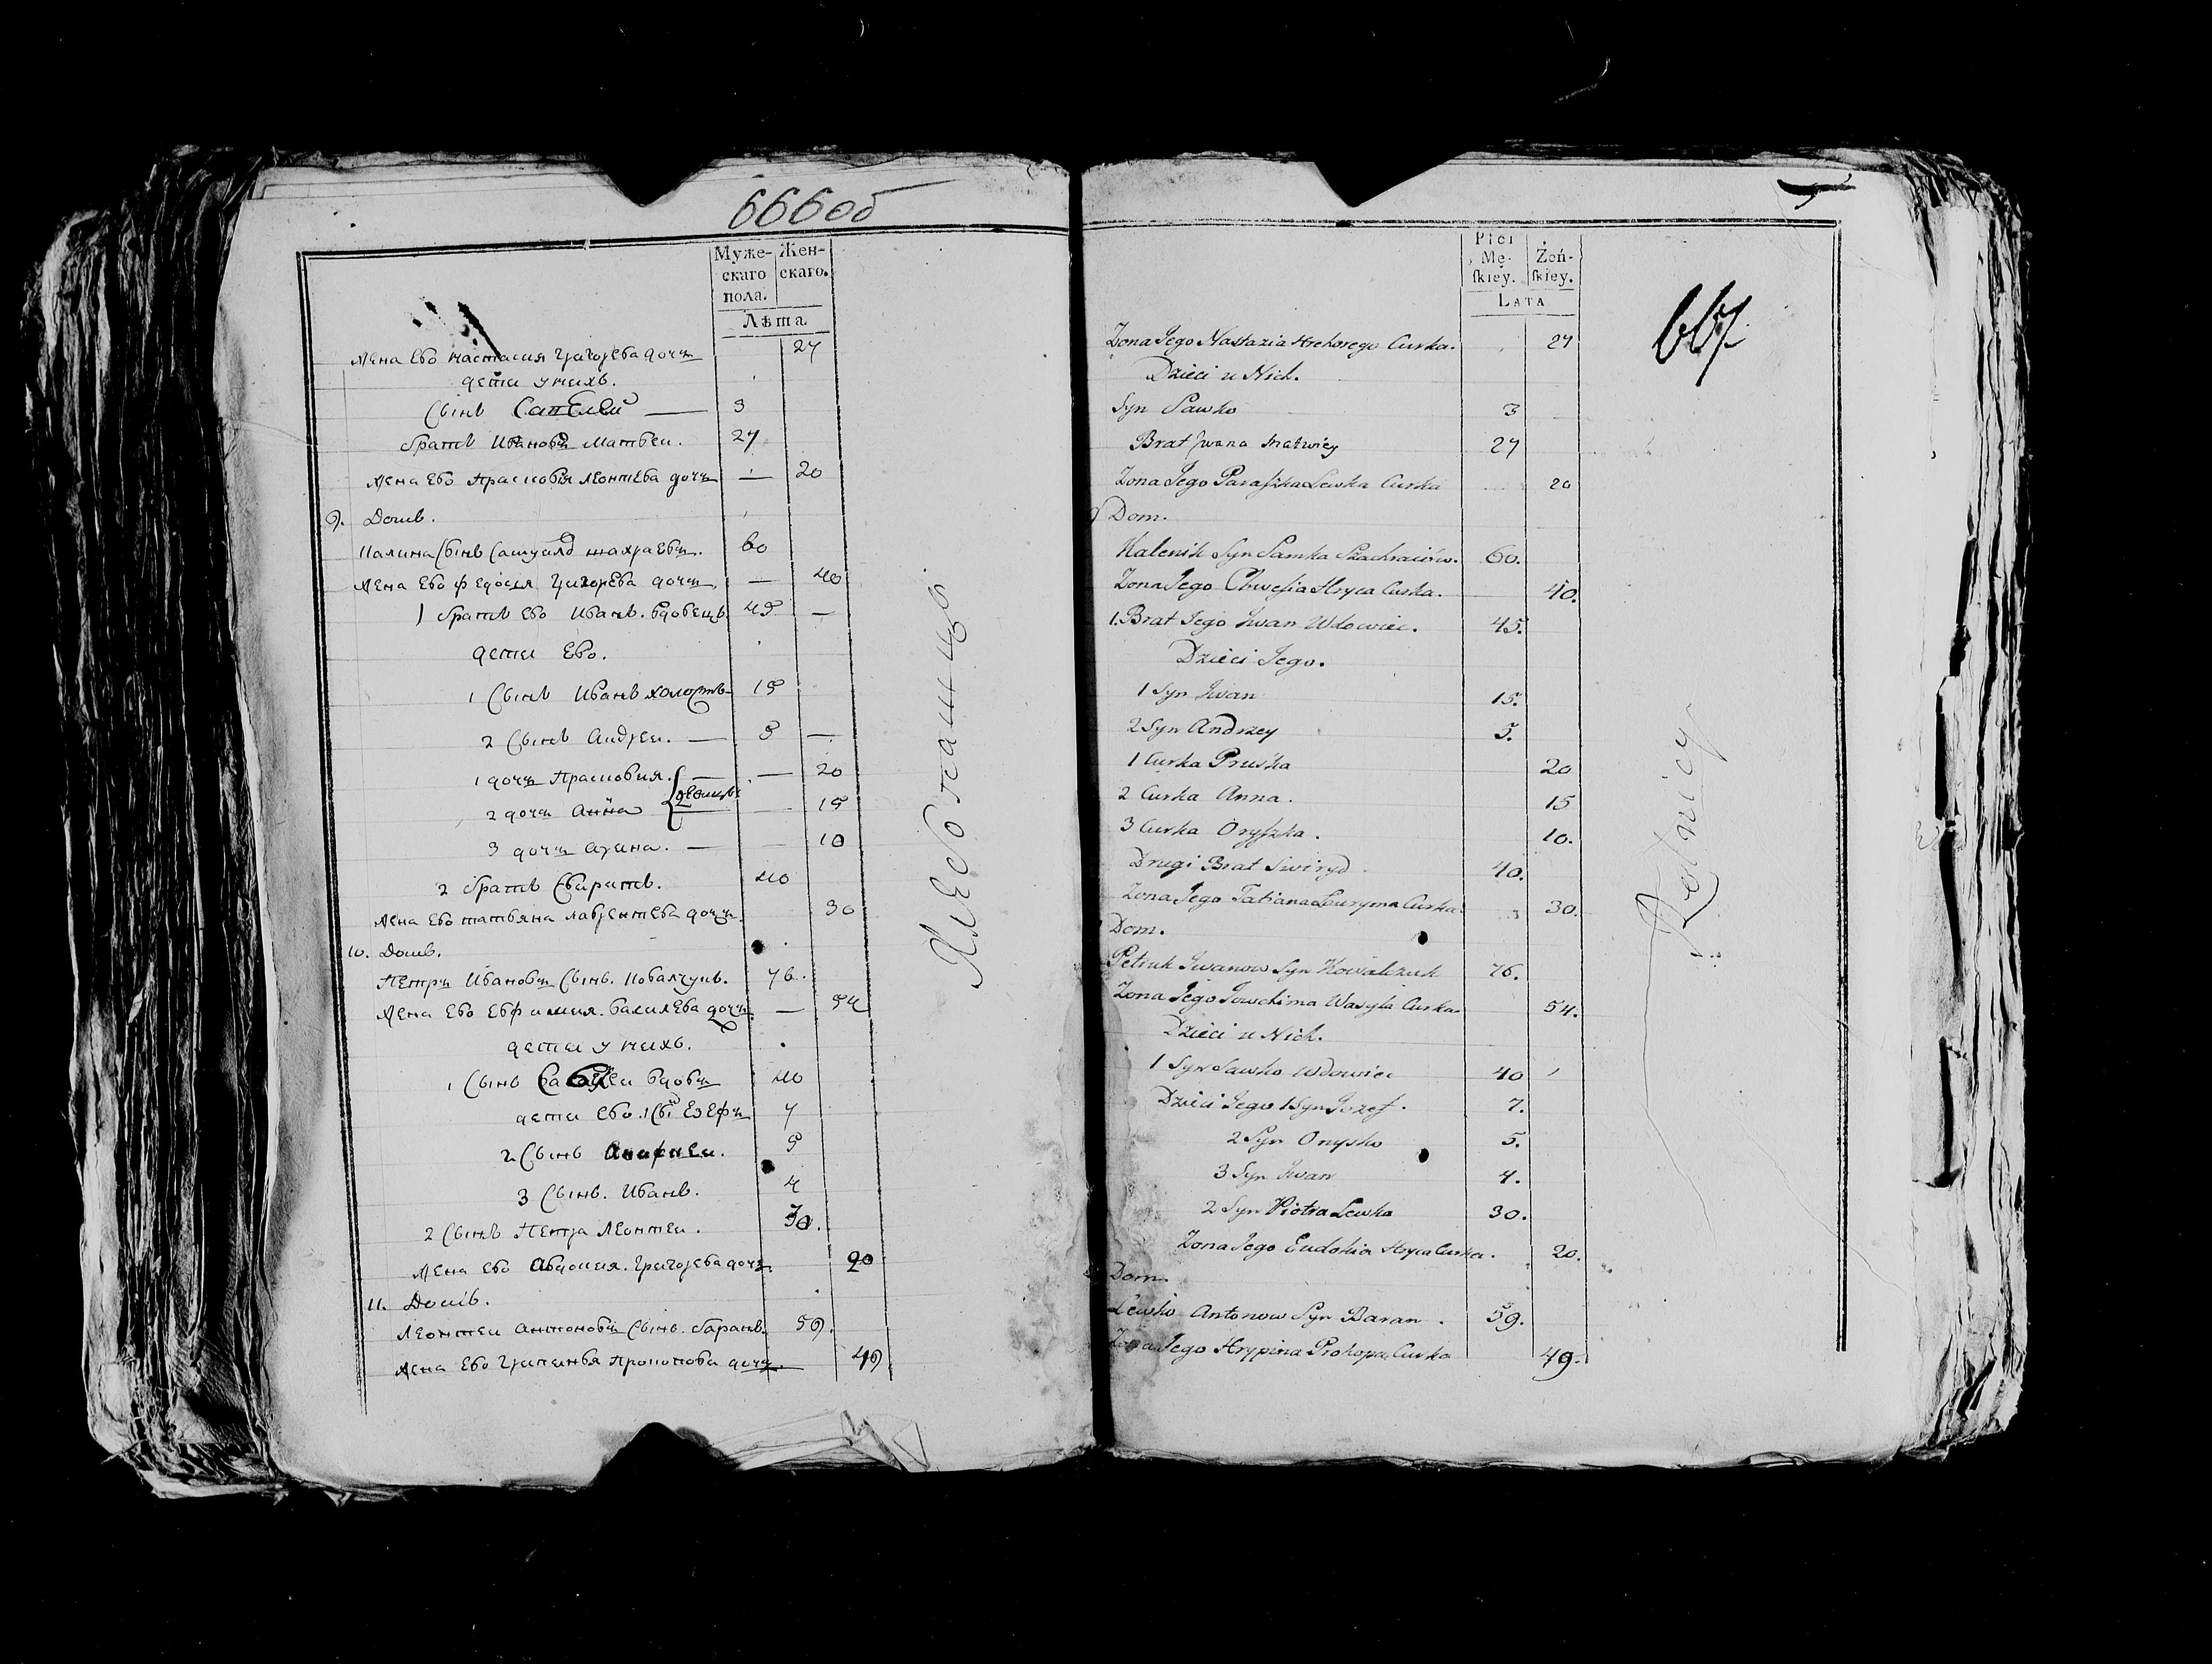 666об
Муже-
скаго
пола.
Жен-
скаго.
Лѣта
Жена ево настасия григорева дочь 27
дети у нихъ.
Сынъ Савелей — 3
братъ Ивановъ Матвеи. 27
Жена ево Прасковія леонтева дочь — 20
9. Домъ.
Калина Сынъ Самуила шахраевъ. 60
Жена ево федосия григорева дочь — 40
1 братъ ево Иванъ. вдовецъ. 45 —
дети Ево.
1 Сынъ Иванъ холостъ 15
2 Сынъ Андреи. — 5 —
1 дочь Прасковия. — — 20
2 дочь Анна девицы — 15
3 дочь арина. — 10
2 братъ Свиридъ. 40
Жена ево татьяна лаврентева дочь 30
10. Домъ.
Петръ Ивановъ Сынъ. Ковалчукъ. 76.
Жена Ево Евфимия. василева дочь. — 54
дети у нихъ.
1 Сынъ вдовъ 40
дети ево. 1 Сынъ Езефъ 7
2 Сынъ 5
3 Сынъ. Иванъ. 4
2 Сынъ Петра леонтеи. 30.
Жена ево Авдокия. григорева дочь. 20
11. Домъ.
Леонтеи антоновъ Сынъ. баранъ. 59.
Жена Ево Прокопова дочь. 49
Хлебопашцы
Płci
Mę-
ſkiey.
Żeń-
ſkiey.
Lata
667
Zona Jego Nastazia Hrehorego Curka. 27
Dzieci u Nich.
Syn Sawko 3
Brat Jwana Matwiey 27
Zona Jego Paraſzka Lewka Curka 20
9 Dom.
Kalenik Syn Samka Szachraiów. 60.
Zona Jego Chwesia Hryca Curka. 40.
1. Brat Jego Jwan Wdowiec. 45.
Dzieci Jego.
1 Syn Jwan 15.
2 Syn Andrzey 5.
1 Curka Pruśka 20
2 Curka Anna. 15
3 Curka Oryſzka. 10.
Drugi Brat Swiryd 40.
Zona Jego Tatiana Lauryna Curka. 30.
Dom.
Petruk Jwanow Syn Kowalczuk 76.
Zona Jego Jowchima Wasyla Curka 54.
Dzieci u Nich.
1 Syn Sawko wdowiec 40
Dzieci Jego 1 Syn Jozef. 7.
2 Syn Onysko 5.
3 Syn Jwan 4.
2 Syn Piotra Lewko 30.
Zona Jego Eudokia Hryca Curka. 20.
Dom.
Lewko Antonow Syn Baran. 59.
Zona Jego Hrypina Prokopa Curka 49.
Rolnicy